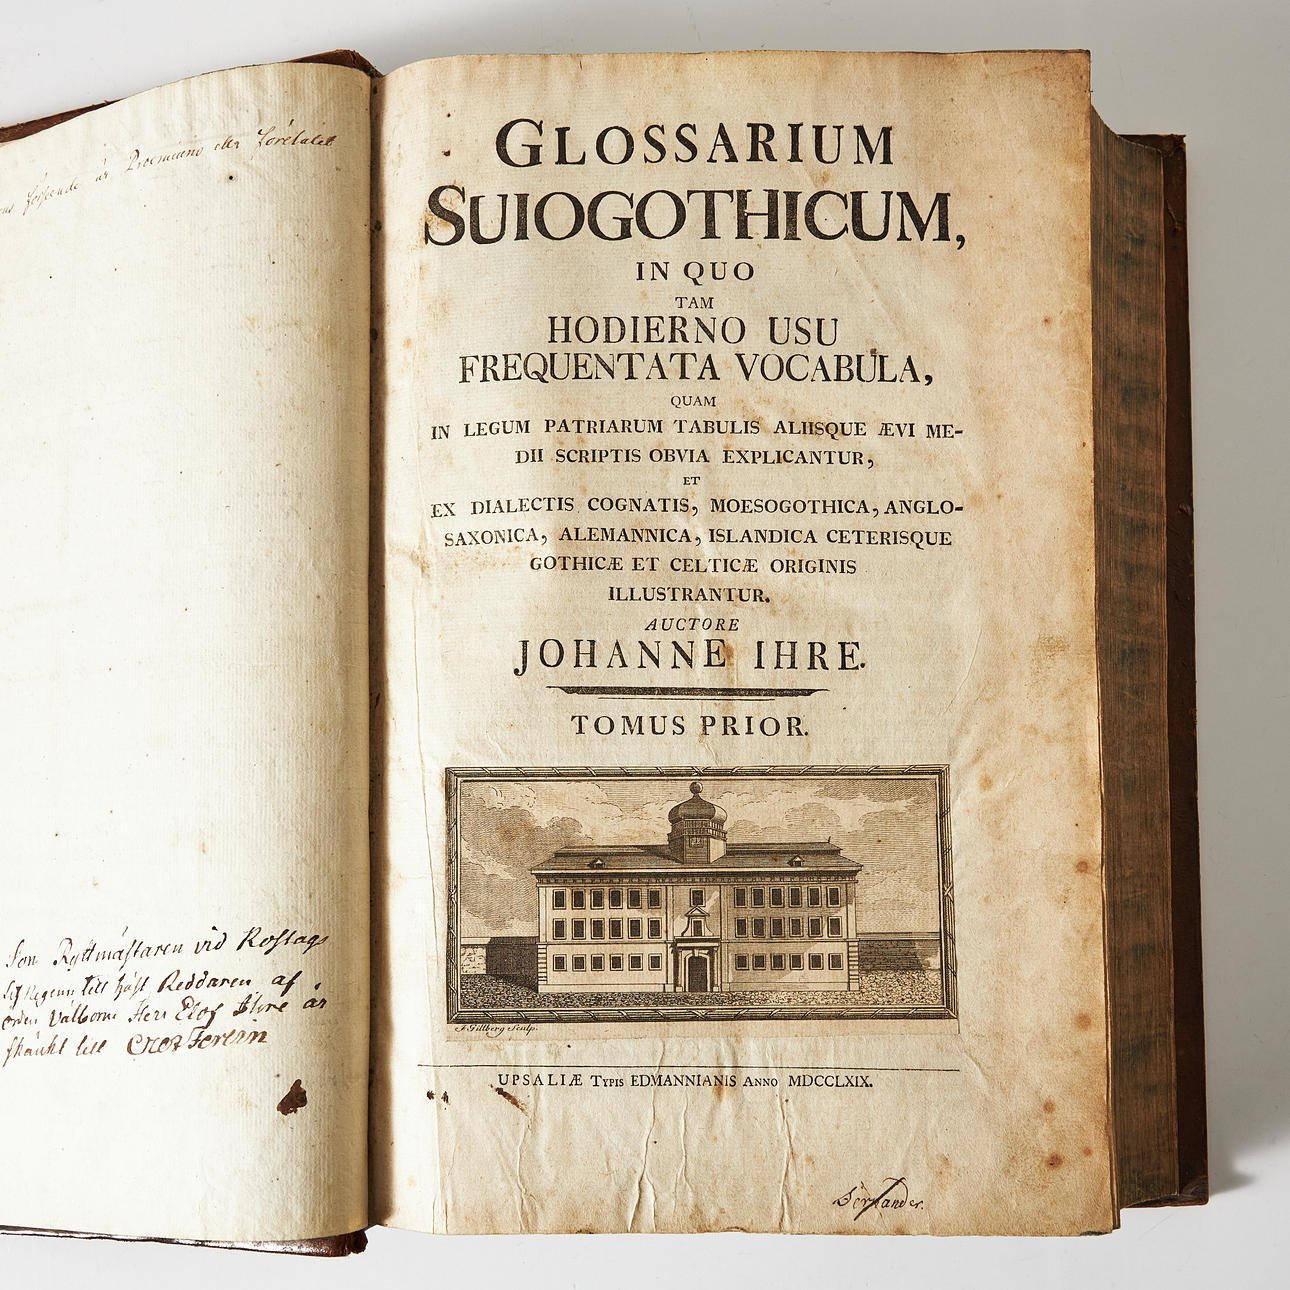 är Prœmium eller företalet
Son Ryttmästaren vid Roslags
till häst Riddaren af
Välborne Herr Elof Ihre är
skänkt till
GLOSSARIUM
SUIOGOTHICUM,
IN QUO
TAM
HODIERNO USU
FREQUENTATA VOCABULA,
QUAM
IN LEGUM PATRIARUM TABULIS ALIISQUE ÆVI ME-
DII SCRIPTIS OBVIA EXPLICANTUR,
ET
EX DIALECTIS COGNATIS, MOESOGOTHICA, ANGLO-
SAXONICA, ALEMANNICA, ISLANDICA CETERISQUE
GOTHICÆ ET CELTICÆ ORIGINIS
ILLUSTRANTUR.
AUCTORE
JOHANNE IHRE.
TOMUS PRIOR.
J. Gillberg Sculp.
UPSALIÆ TYPIS EDMANNIANIS ANNO MDCCLXIX.